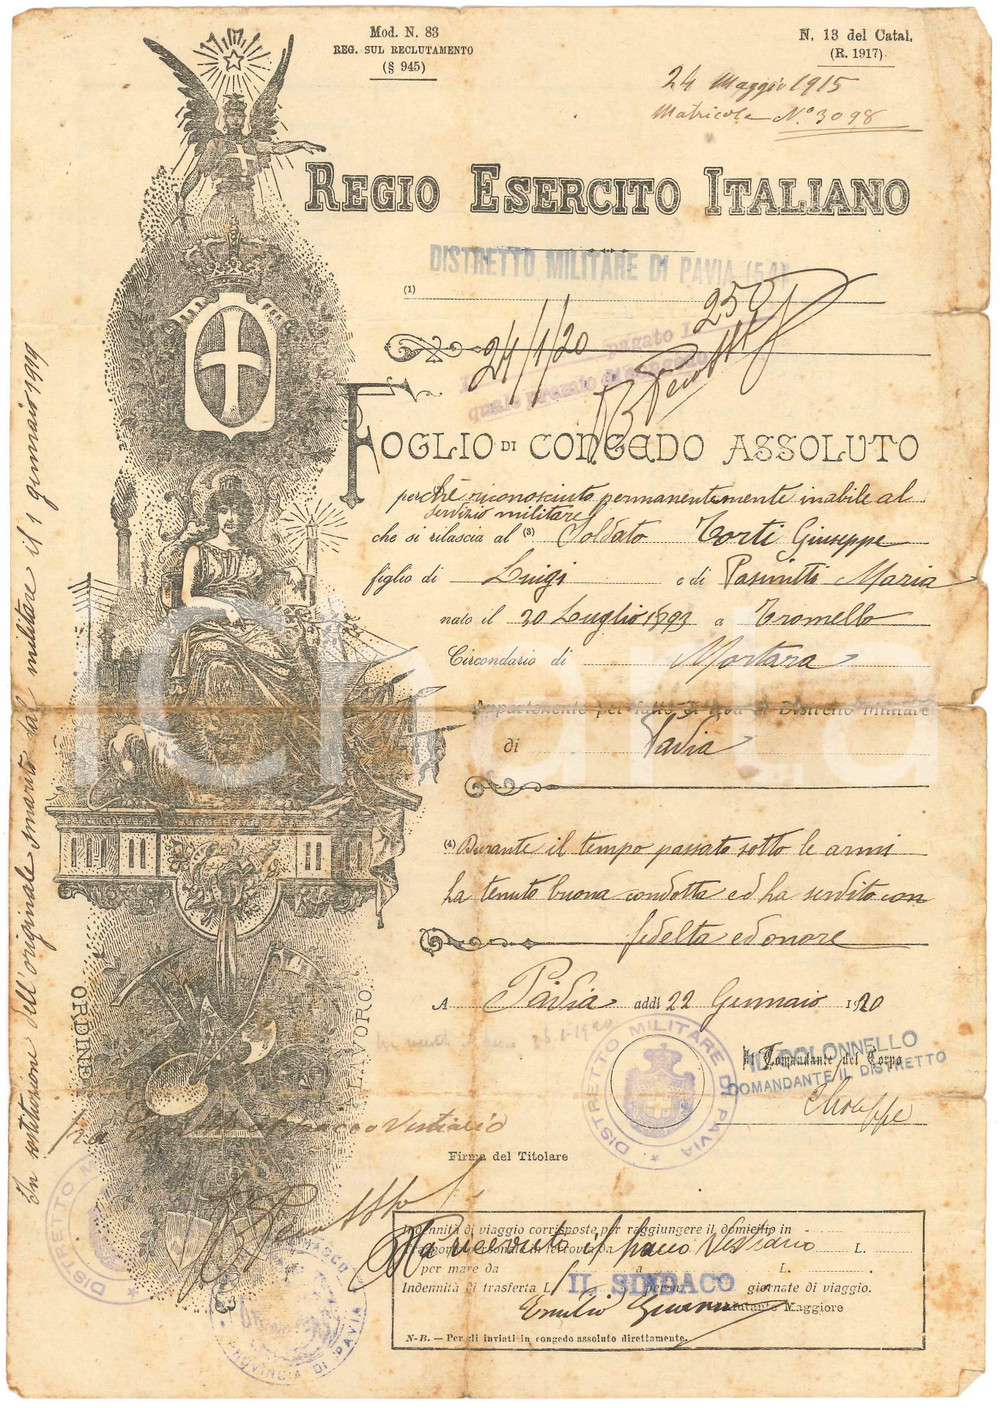 Mod. N. 83
REG. SUL RECLUTAMENTO
(§ 945)
N. 13 del Catal.
(R. 1917)
24 Maggio 1915
Matricola N.° 3098
REGIO ESERCITO ITALIANO
DISTRETTO MILITARE DI PAVIA (54)
(1)
250
24/1/20
pagato L.
quale premio di congedo
FOGLIO DI CONGEDO ASSOLUTO
perchè riconosciuto permanentemente inabile al
servizio militare
che si rilascia al (3) Soldato Torti Giuseppe
figlio di Luigi e di Maria
nato il 20 Luglio 1893 a Tromello
Circondario di Mortara
Appartenente per fatto di leva al Distretto Militare
di Pavia
(4) Durante il tempo passato sotto le armi
ha tenuto buona condotta ed ha servito con
fedeltà ed onore
A Pavia addì 22 Gennaio 1920
Il Comandante del Corpo
IL COLONNELLO
COMANDANTE IL DISTRETTO
DISTRETTO MILITARE DI PAVIA
ORDINE
LAVORO
pacco Vestiario
Firma del Titolare
Indennità di viaggio corrisposte per raggiungere il domicilio in
Ha ricevuto il pacco Vestiario
L.
per mare da a L.
Indennità di trasferta L. per N. giornate di viaggio.
IL SINDACO
Emilio
L'Aiutante Maggiore
N-B. — Per gli inviati in congedo assoluto direttamente.
DISTRETTO M
PROVINCIA DI PAVIA
In sostituzione dell'originale smarrito dal militare il 1 gennaio 1919
iCharta